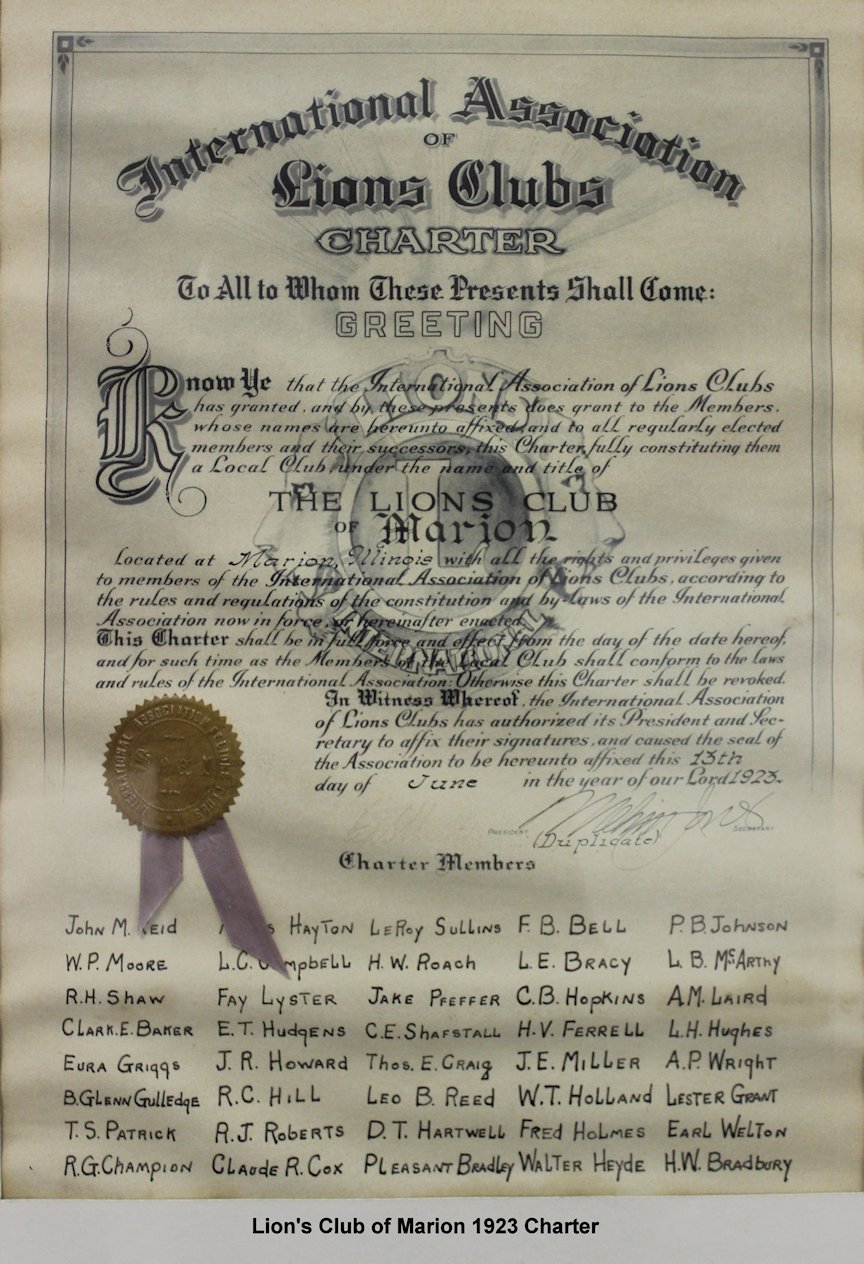 International Association
OF
Lions Clubs
CHARTER
To All to Whom These Presents Shall Come:
GREETING
Know Ye that the International Association of Lions Clubs
has granted, and by these presents does grant to the Members,
whose names are hereunto affixed, and to all regularly elected
members and their successors, this Charter, fully constituting them
a Local Club, under the name and title of
THE LIONS CLUB
OF Marion
Located at Marion, Illinois with all the rights and privileges given
to members of the International Association of Lions Clubs, according to
the rules and regulations of the constitution and by-laws of the International
Association now in force, or hereinafter enacted.
This Charter shall be in full force and effect from the day of the date hereof,
and for such time as the Members of the Local Club shall conform to the laws
and rules of the International Association: Otherwise this Charter shall be revoked.
In Witness Whereof, the International Association
of Lions Clubs has authorized its President and Sec-
retary to affix their signatures, and caused the seal of
the Association to be hereunto affixed this 13th
day of June in the year of our Lord 1923.
PRESIDENT SECRETARY
(Duplicate)
Charter Members
John M. HAYTON LEROY SULLINS F. B. BELL P. B. JOHNSON
W. P. MOORE L.C. H. W. ROACH L. E. BRACY L. B. McARTHY
R. H. SHAW FAY LYSTER JAKE PFEFFER C. B. HOPKINS A. M. LAIRD
CLARK. E. BAKER E. T. HUDGENS C. E. SHAFSTALL H. V. FERRELL L. H. HUGHES
EURA GRIGGS J. R. HOWARD THOS. E. CRAIG J. E. MILLER A. P. WRIGHT
B. GLENN GULLEDGE R. C. HILL LEO B. REED W. T. HOLLAND LESTER GRANT
T. S. PATRICK R. J. ROBERTS D. T. HARTWELL FRED HOLMES EARL WELTON
R. G. CHAMPION CLAUDE R. COX PLEASANT BRADLEY WALTER HEYDE H. W. BRADBURY
Lion's Club of Marion 1923 Charter